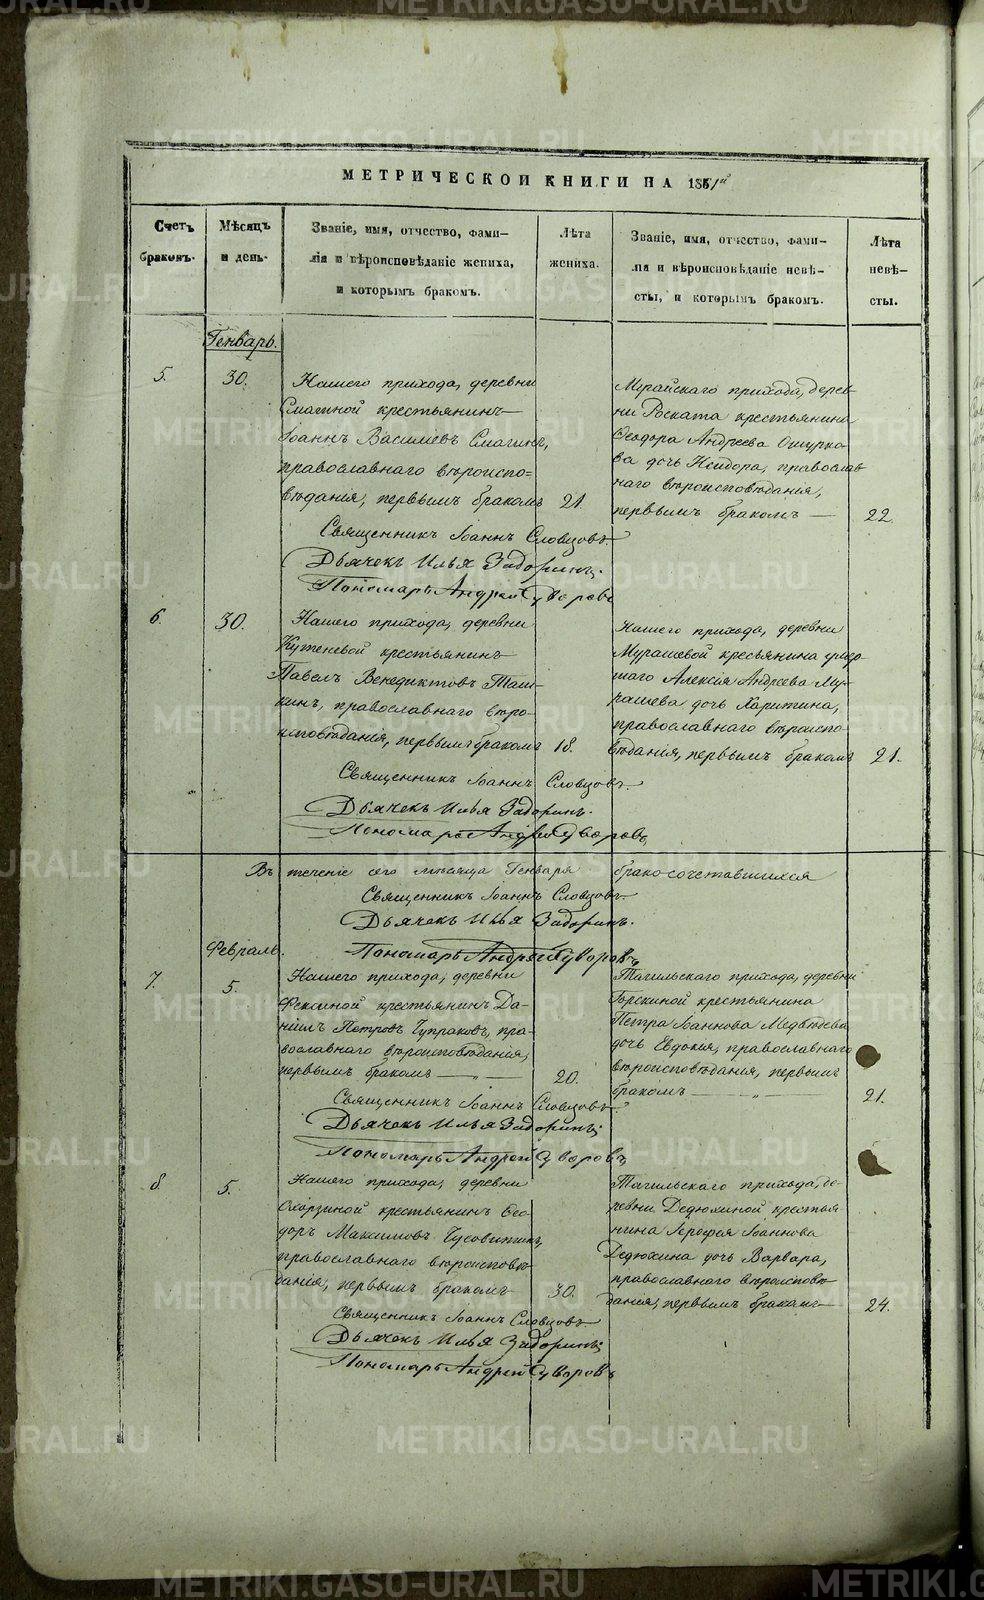 МЕТРИЧЕСКОЙ КНИГИ НА 1861й
Счетъ браковъ.
Мѣсяцъ и день.
Званіе, имя, отчество, фами-
лія и вѣроисповѣданіе жениха,
и которымъ бракомъ.
Лѣта жениха.
Званіе, имя, отчество, фами-
лія и вѣроисповѣданіе невѣ-
сты, и которымъ бракомъ.
Лѣта невѣ-
сты.
Генварь.
5.
30.
Нашего прихода, деревни
крестьянинъ
Іоаннъ Васильевъ Смагинъ,
православнаго вѣроиспо-
вѣданія, первымъ бракомъ
21.
прихода, дерев-
ни Роската крестьянина
Ѳеодора Андреева Ошурко-
ва дочь православ-
наго вѣроисповѣданія,
первымъ бракомъ —
22.
Священникъ Іоаннъ Словцовъ.
Дьячекъ Илья Задоринъ.
Пономарь Андрей Суворовъ
6.
30.
Нашего прихода, деревни
крестьянинъ
Павелъ Венедиктовъ Таш-
кинъ, православнаго вѣро-
исповѣданія, первымъ бракомъ
18.
Нашего прихода, деревни
Мурашевой кресьянина
Алексія Андреева Му-
рашева дочь Харитина,
православнаго вѣроиспо-
вѣданія, первымъ бракомъ
21.
Священникъ Іоаннъ Словцовъ.
Дьячекъ Илья Задоринъ.
Пономарь Андрей Суворовъ
Въ теченіе сего мѣсяца Генваря бракосочетавшихся
Священникъ Іоаннъ Словцовъ.
Дьячекъ Илья Задоринъ.
Пономарь Андрей Суворовъ
Февраль.
7.
5.
Нашего прихода, деревни
крестьянинъ Да-
ніилъ Петровъ Чупраковъ, пра-
вославнаго вѣроисповѣданія,
первымъ бракомъ — „ —
20.
Тагильскаго прихода, деревни
Горскиной крестьянина
Петра Іоаннова Медвѣдева
дочь Евдокія, православнаго
вѣроисповѣданія, первымъ
бракомъ — „ —
21.
Священникъ Іоаннъ Словцовъ.
Дьячекъ Илья Задоринъ.
Пономарь Андрей Суворовъ
8.
5.
Нашего прихода, деревни
крестьянинъ Ѳео-
доръ Максимовъ Чусовитинъ,
православнаго вѣроисповѣ-
данія, первымъ бракомъ
30.
Тагильскаго прихода, де-
ревни Дедюхиной крестья-
нина Іерофея Іоаннова
Дедюхина дочь Варвара,
православнаго вѣроисповѣ-
данія, первымъ бракомъ —
24.
Священникъ Іоаннъ Словцовъ
Дьячекъ Илья Задоринъ.
Пономарь Андрей Суворовъ
METRIKI.GASO-URAL.RU